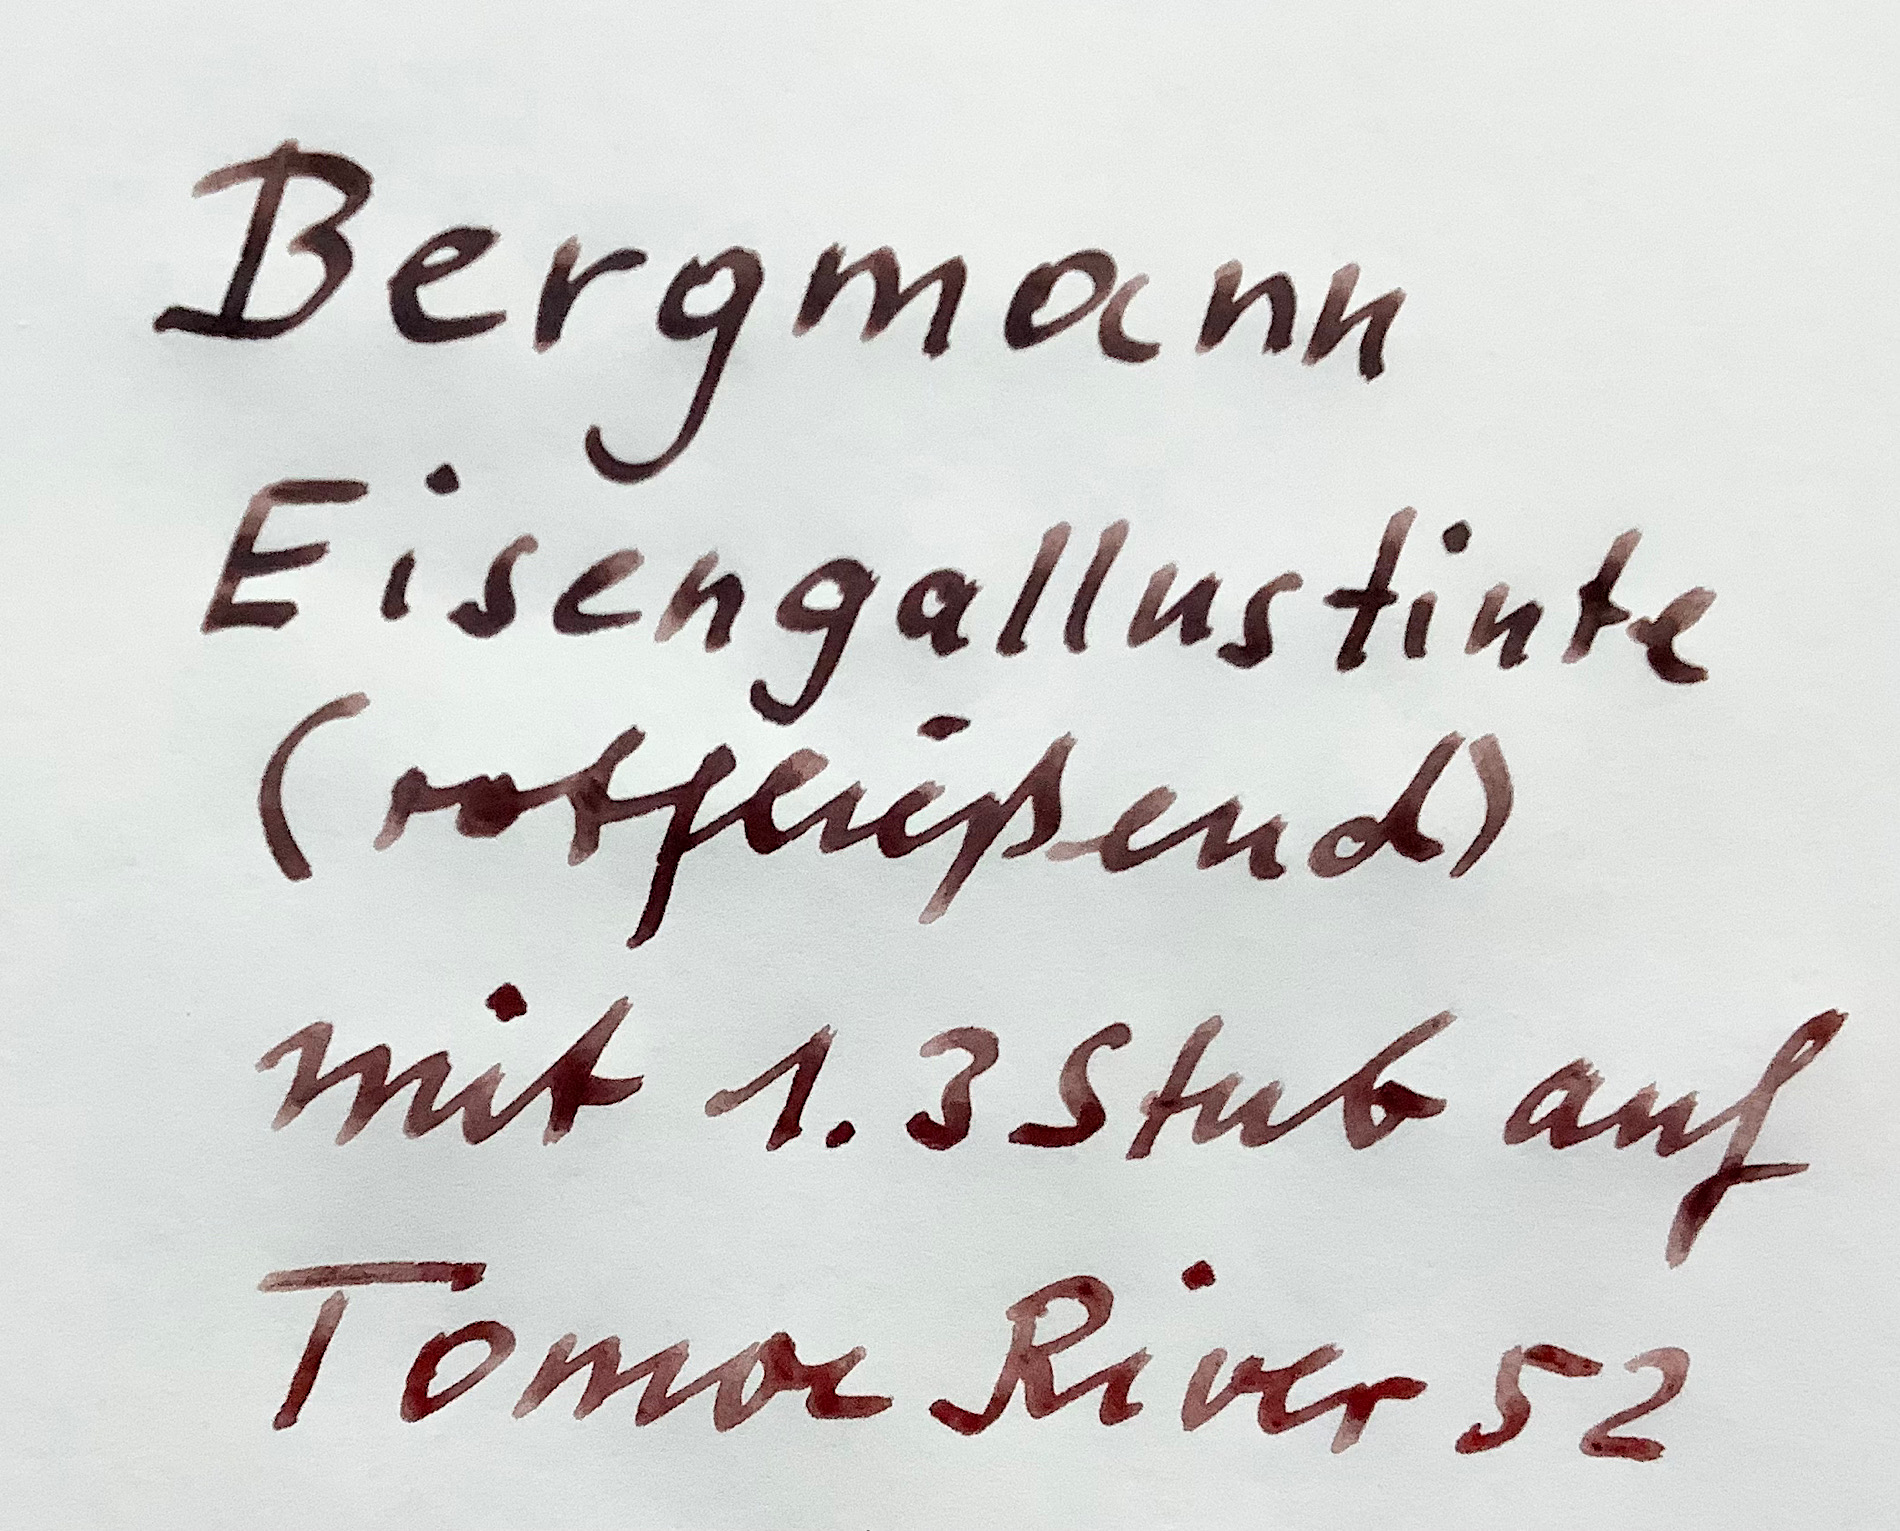 Bergmann
Eisengallustinte
(rotfließend)
mit 1.3 Stub auf
Tomoe River 52